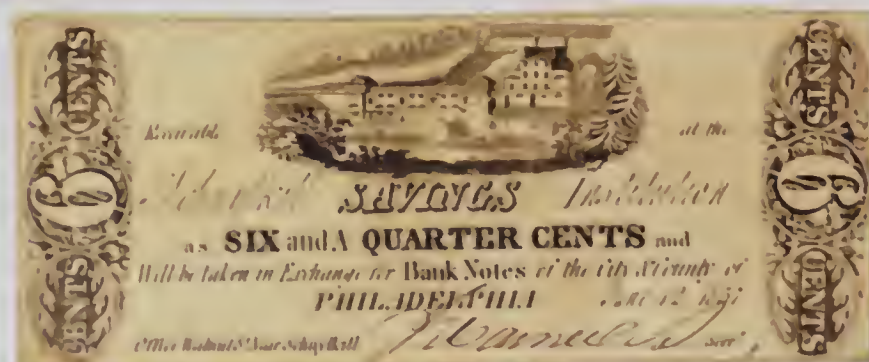 CENTS
6
CENTS
Receivable at the
SAVINGS Institution
as SIX and A QUARTER CENTS and
Will be taken in Exchange for Bank Notes of the City & County of
PHILADELPHIA
Office Walnut St near Schuylkill
CENTS
6
CENTS